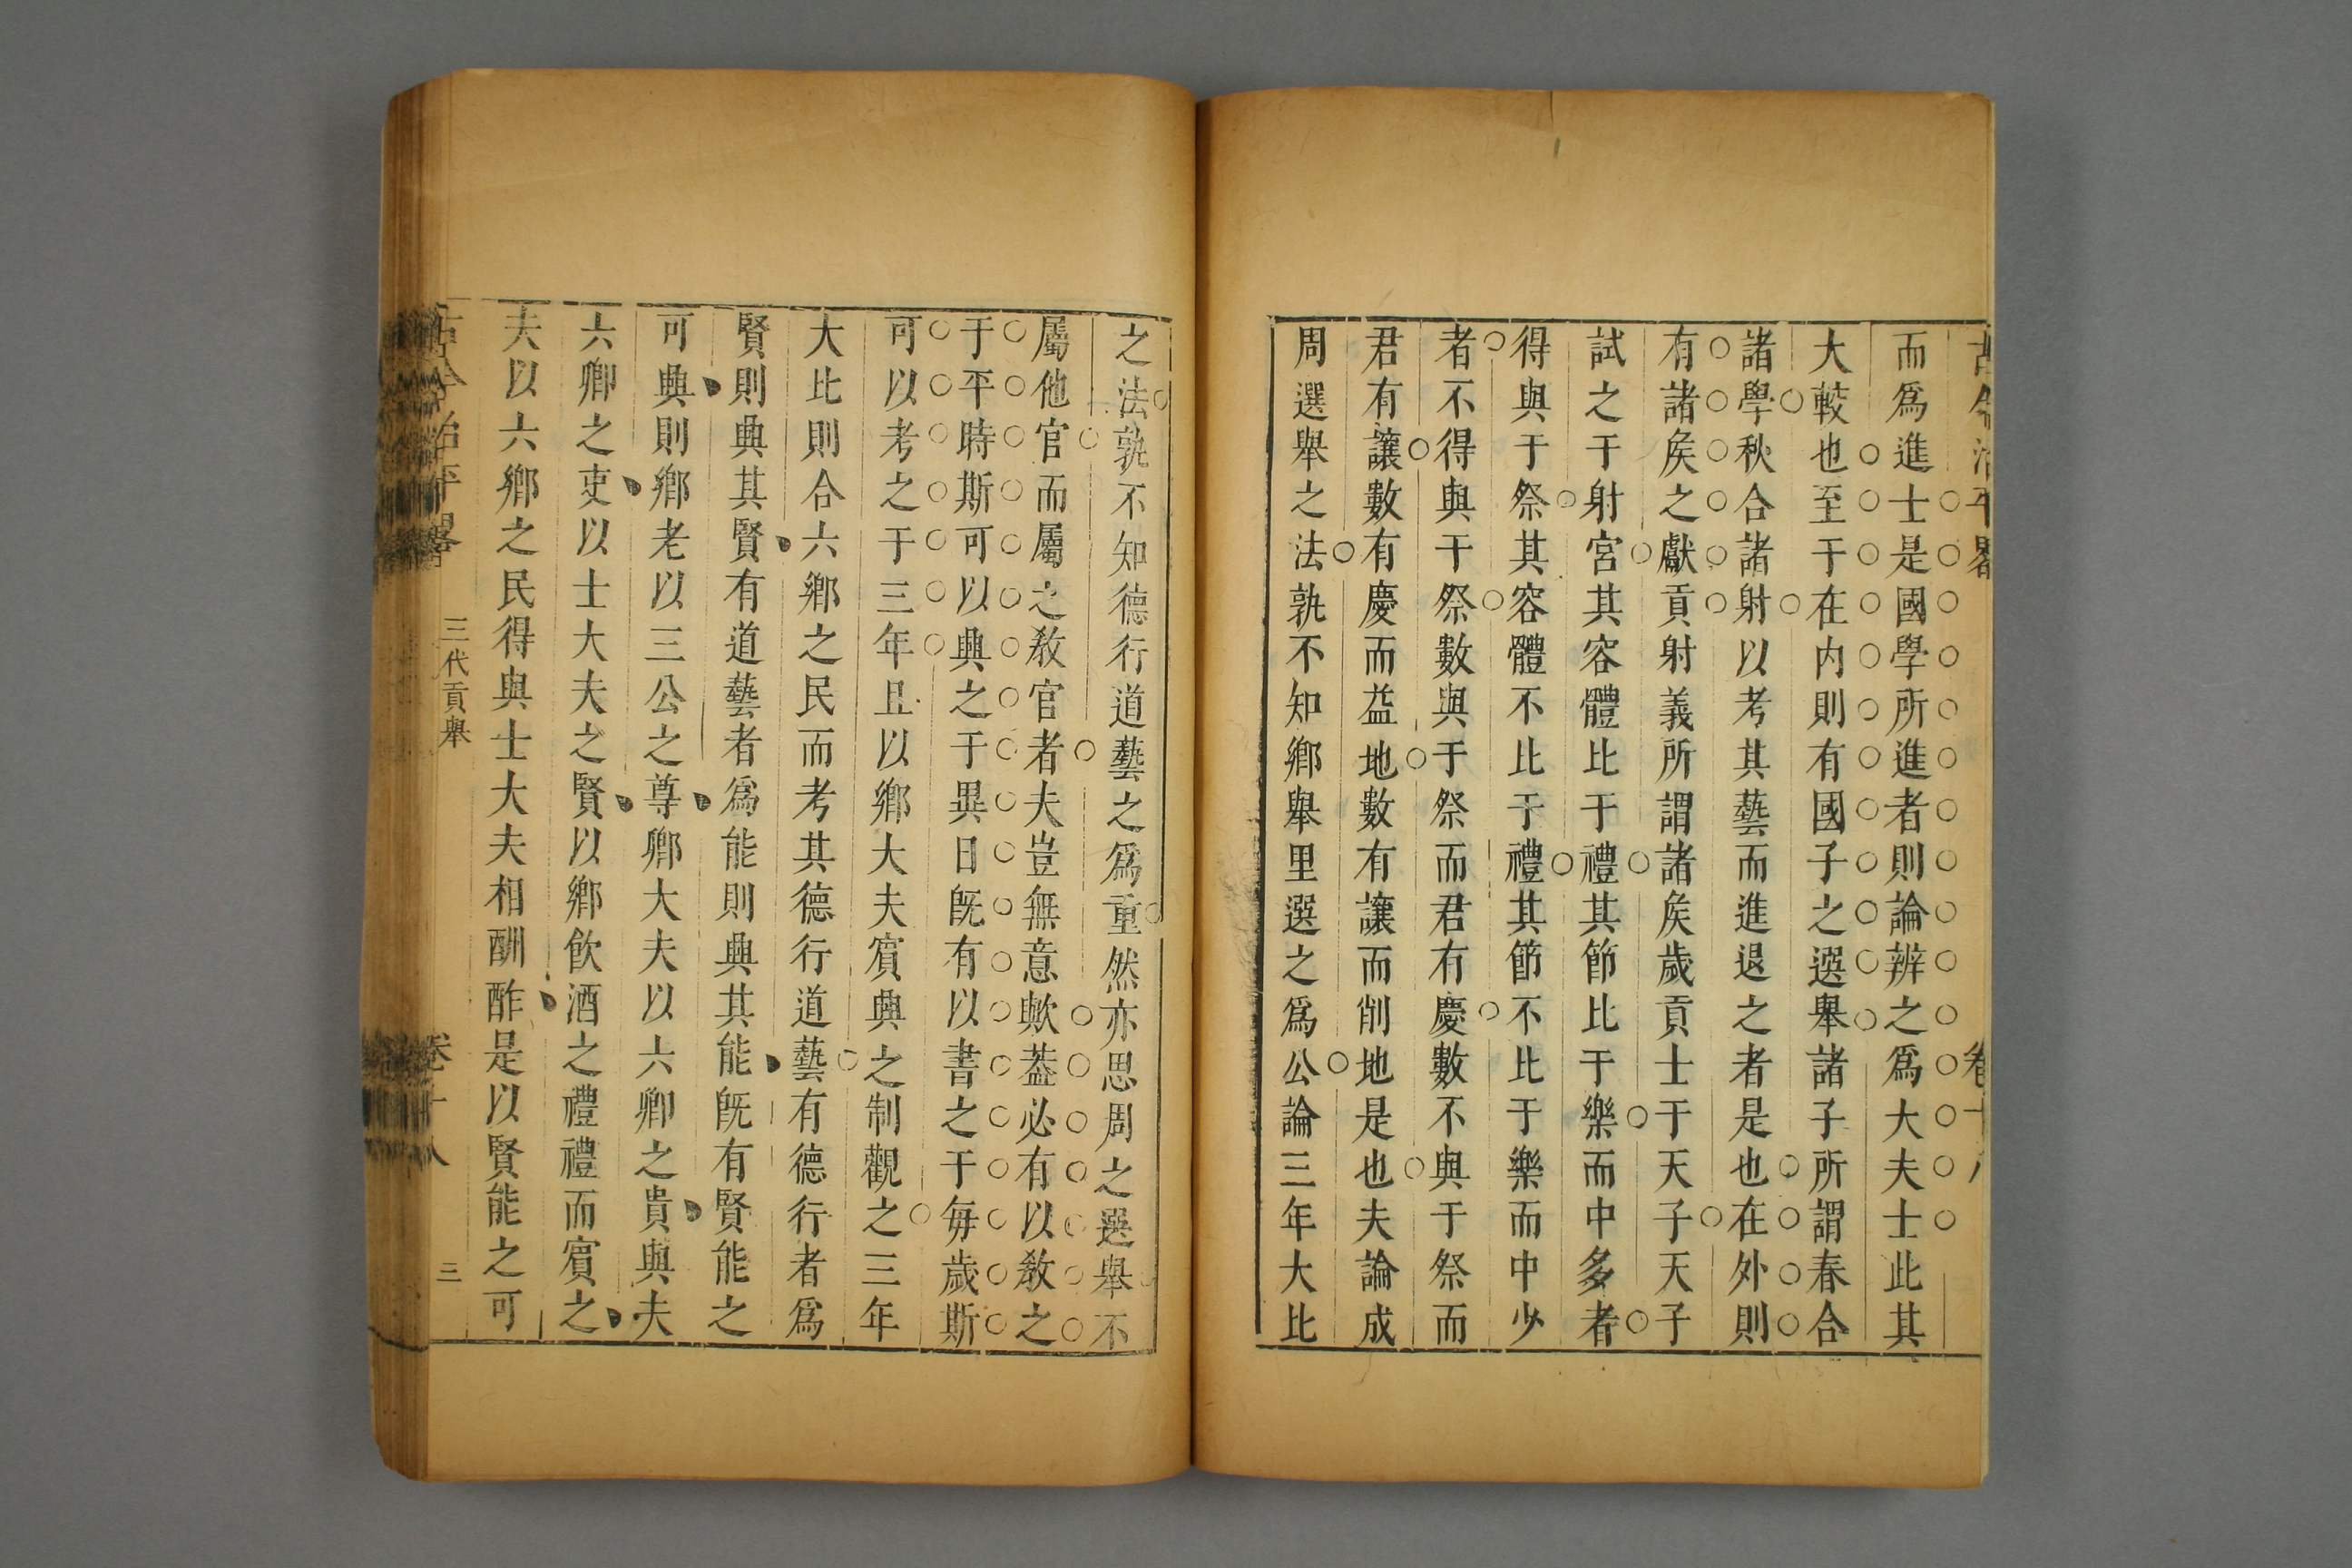 古今治平畧 卷十八
而爲進士是國學所進者則論辨之爲大夫士此其
大較也至于在内則有國子之選舉諸子所謂春合
諸學秋合諸射以考其藝而進退之者是也在外則
有諸矦之獻貢射義所謂諸矦歲貢士于天子天子
試之于射宮其容體比于禮其節比于樂而中多者
得與于祭其容體不比于禮其節不比于樂而中少
者不得與于祭數與于祭而君有慶數不與于祭而
君有讓數有慶而益地數有讓而削地是也夫論成
周選舉之法孰不知鄉舉里選之爲公論三年大比
之法孰不知德行道藝之爲重然亦思周之選舉不
屬他官而屬之敎官者夫豈無意歟葢必有以敎之
于平時斯可以興之于異日旣有以書之于每歲斯
可以考之于三年且以鄉大夫賓興之制觀之三年
大比則合六鄉之民而考其德行道藝有德行者爲
賢則興其賢有道藝者爲能則興其能旣有賢能之
可興則鄉老以三公之尊鄉大夫以六卿之貴與夫
六卿之吏以士大夫之賢以鄉飲酒之禮禮而賓之
夫以六鄉之民得與士大夫相酬酢是以賢能之可
古今治平畧 三代貢舉 卷十八 三